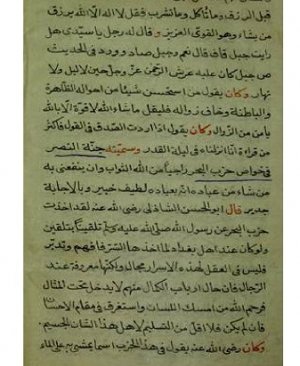 قبل المرفده ما تأكل وما تشرب فقل لا اله الا الله يرزق
من يشاء وهو القوى العزيز وقال له رجل يا سيدى هل
رايت جبل قاف قال نعم وجبل صاد وورد فى الحديث
ص جبل كان عليه عرش الرحمن عز وجل حين لا ليل ولا
نهار وكان يقول من استحسن شيئا من احواله الظاهرة
والباطنة وخاف زواله فليقل ما شاء الله لا قوة الا بالله
يأمن من الزوال وكان يقول اذا اردت الصدق فى القول فاكثر
من قراءة انا انزلناه فى ليلة القدر وسميته جنة النصر
فى خواص حزب البحر راجيا من الله الثواب وان ينتفعنى به
من شاء من عباده انه بعباده لطيف خبير وبالاجابة
جدير قال ابو الحسن الشاذلى رضى الله عنه لقد اخذت
حزب البحر من رسول الله صلى الله عليه وسلم تلقينا بتلقين
ولو كان عند اهل بغداد لما اخذها التتر فافهم وتدبر
فليس فى العقل لهذه الاسرار مجال ولكنها معروفة عند
الرجال فان حال ارباب الكمال منهم لا يدخل تحت المثال
فرحم الله من امسك اللسان واستغرق فى مقام الاحسان
فان لم يكن فلا اقل من التسليم لاهل هذا الشان الجسيم
وكان رضى الله عنه يقول فى هذا الحزب اسما يمشى به على الماء